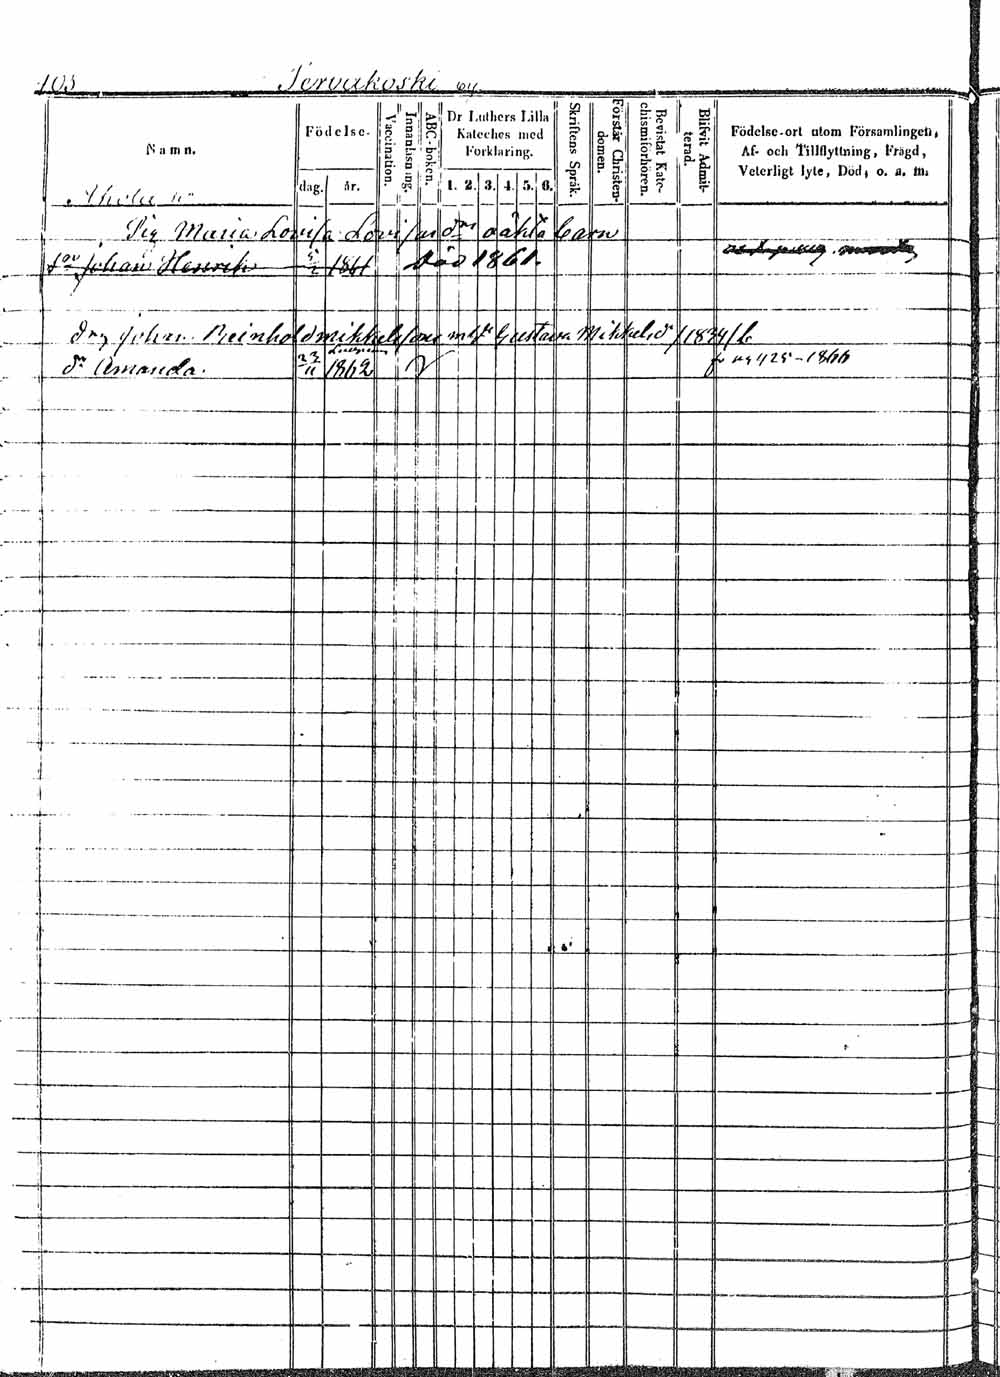 103 Tervakoski by
Namn.
Födelse-
dag. år.
Vaccination.
Innanläsning.
ABC-boken.
Dr Luthers Lilla
Kateches med
Förklaring.
1. 2. 3. 4. 5. 6.
Skriftens Språk.
Förstår Christen-
domen.
Bevistat Kate-
chismiförhören.
Blifvit Admit-
terad.
Födelse-ort utom Församlingen,
Af- och Tillflyttning, Frägd,
Veterligt lyte, Död, o. a. m.
Ahola
Pig Maria Lovisa Lovisas dr oäkta barn
son Johan Henrik 1861 död 1861.
drg Johan Reinhold Mikkelsons m h Gustava Mikkelsd /1834/
dr Amanda. 23/11 1862 425-1866